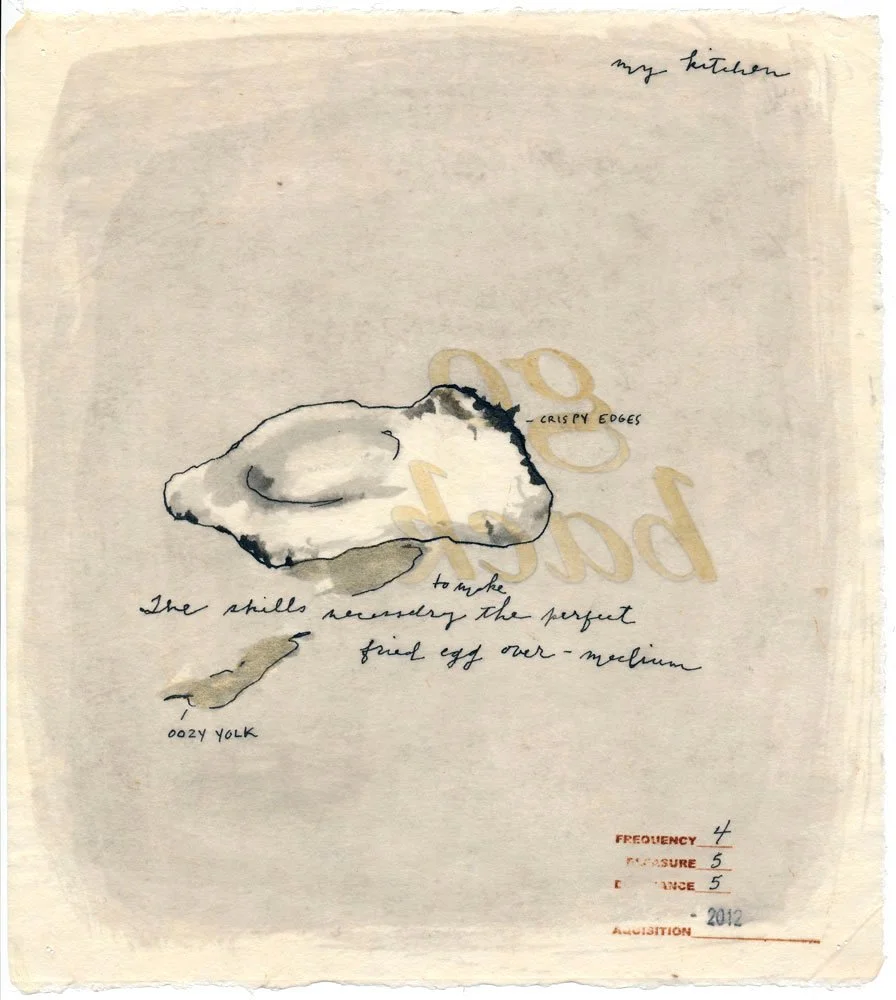 my kitchen
go
- CRISPY EDGES
back
to make
The skills necessary the perfect
fried egg over-medium
OOZY YOLK
FREQUENCY 4
PLEASURE 5
5
- 2012
AQUISITION